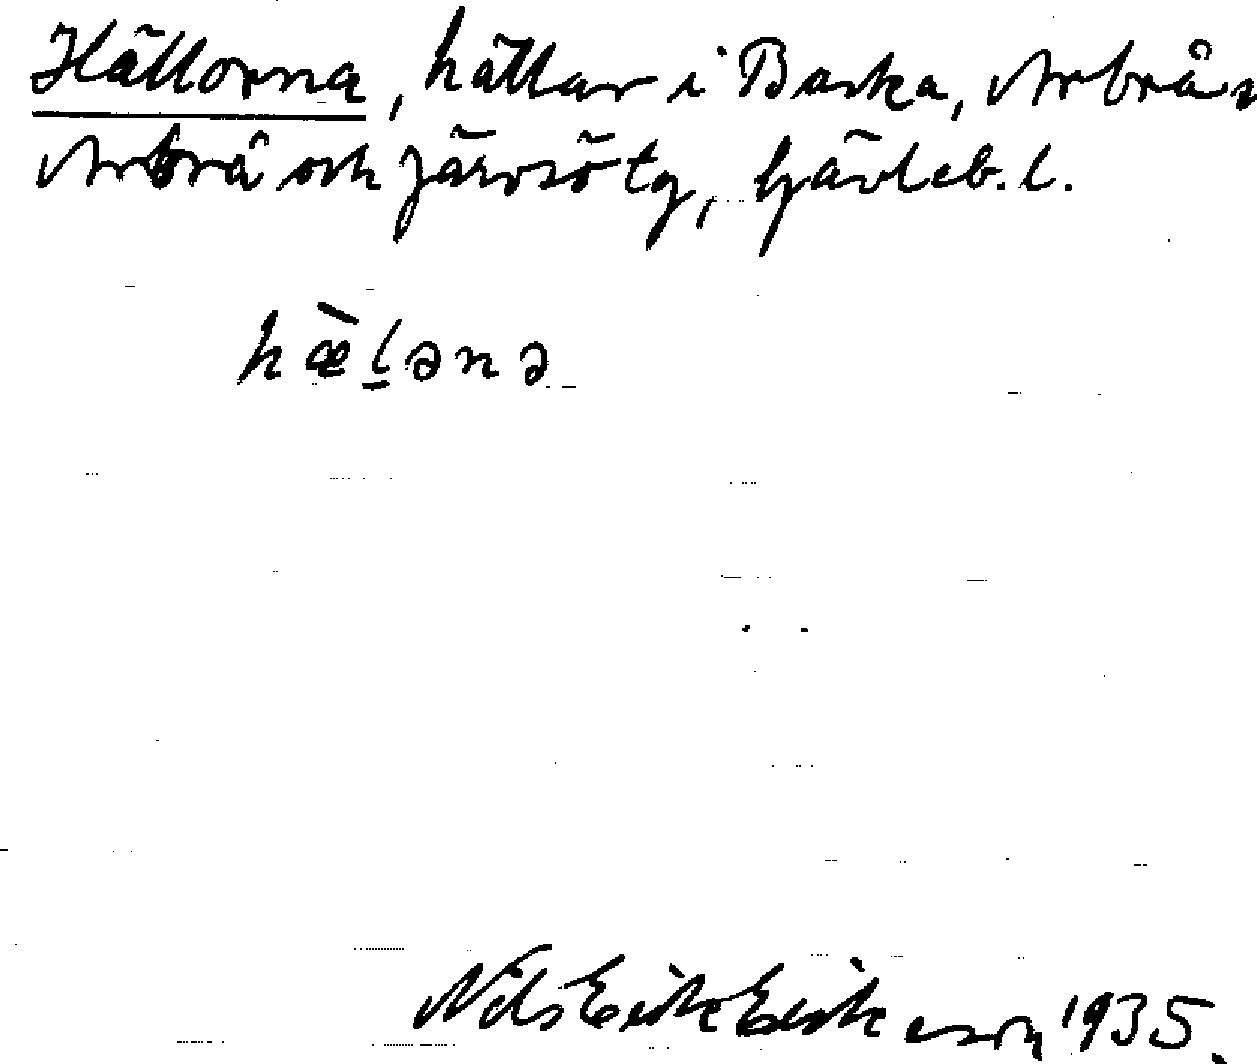 Hällorna, hällar i Baska, Arbrå s
Arbrå och Järvsö tg, Gävleb. l.
hæ̀l̠ənə
Nils Erik Eriksson 1935.